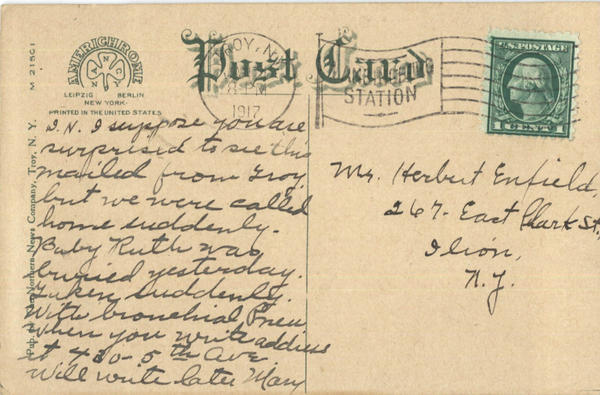 M 21501
AMERICHROME
ANCO
LEIPZIG BERLIN
NEW YORK
PRINTED IN THE UNITED STATES
Post Card
TROY, N.Y.
8-PM
1917
STATION
U.S. POSTAGE
1 CENT 1
Northern News Company, Troy, N. Y.
I suppose you are
surprised to see this
mailed from Troy
but we were called
home suddenly.
Baby Ruth was
buried yesterday.
Taken suddenly.
With bronchial Pneu
When you write address
it 430-5th Ave
Will write later Mary
Mr. Herbert Enfield,
267- East Clark St.,
Ilion,
N.Y.